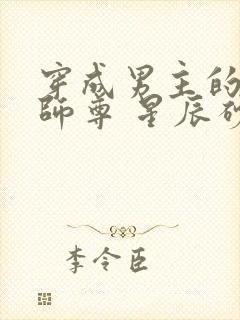 穿成男主的
師尊 星辰砂
李令臣